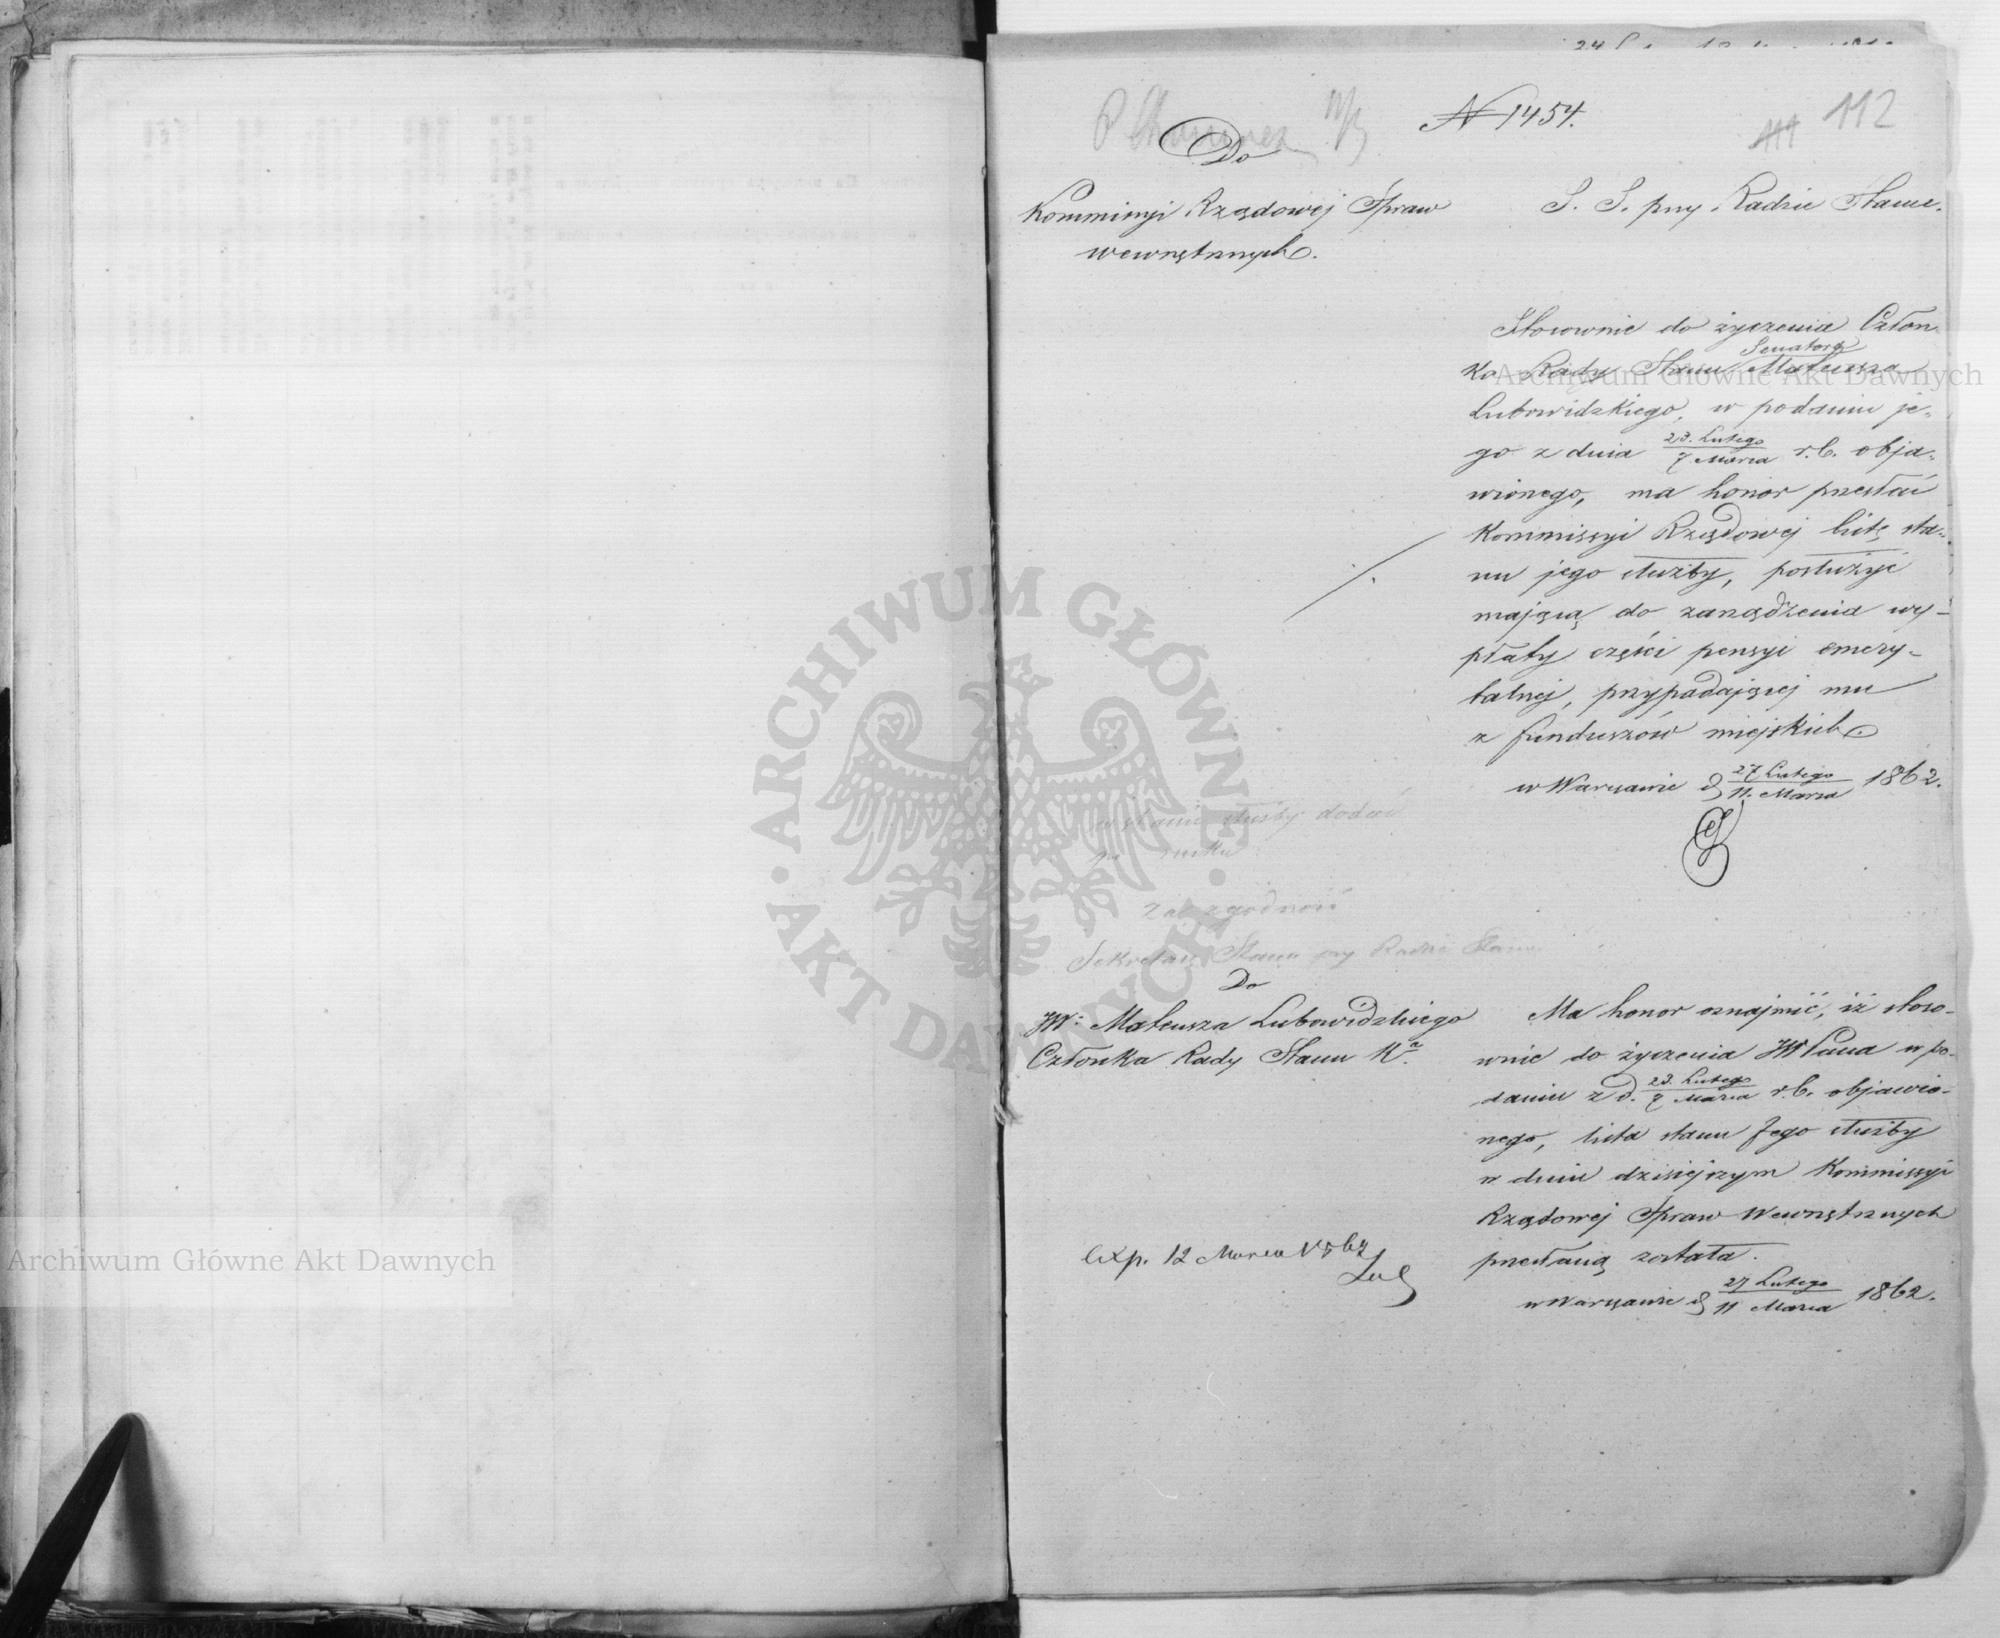 N 1454.
111 112
Do
Kommissyi Rządowej Spraw
wewnętrznych.
S. S. przy Radzie Stanu.
Stosownie do życzenia Człon-
ka Rady Stanu Senatora Mateusza
Lubowidzkiego, w podaniu je-
go z dnia 23. Lutego / 7 Marca r.b. obja-
wionego, ma honor przesłać
Kommissyi Rządowej listę sta-
nu jego służby, posłużyć
mającą do zarządzenia wy-
płaty części pensyi emery-
talnej, przypadającej mu
z funduszów miejskich
w Warszawie d. 27 Lutego / 11. Marca 1862.
w stanie służby dodać
Za zgodność
Sekretarz Stanu przy Radzie Stanu
Do
JW: Mateusza Lubowidzkiego
Członka Rady Stanu Kr.
Ma honor oznajmić, iż stoso-
wnie do życzenia JWPana w po-
daniu z d. 23. Lutego / 7 Marca r.b. objawio-
nego, lista stanu Jego służby
w dniu dzisiejszym Kommissyi
Rządowej Spraw Wewnętrznych
przesłaną została.
w Warszawie d. 27 Lutego / 11 Marca 1862.
Exp. 12 Marca 1862
Archiwum Główne Akt Dawnych
Archiwum Główne Akt Dawnych
ARCHIWUM GŁÓWNE
AKT DAWNYCH